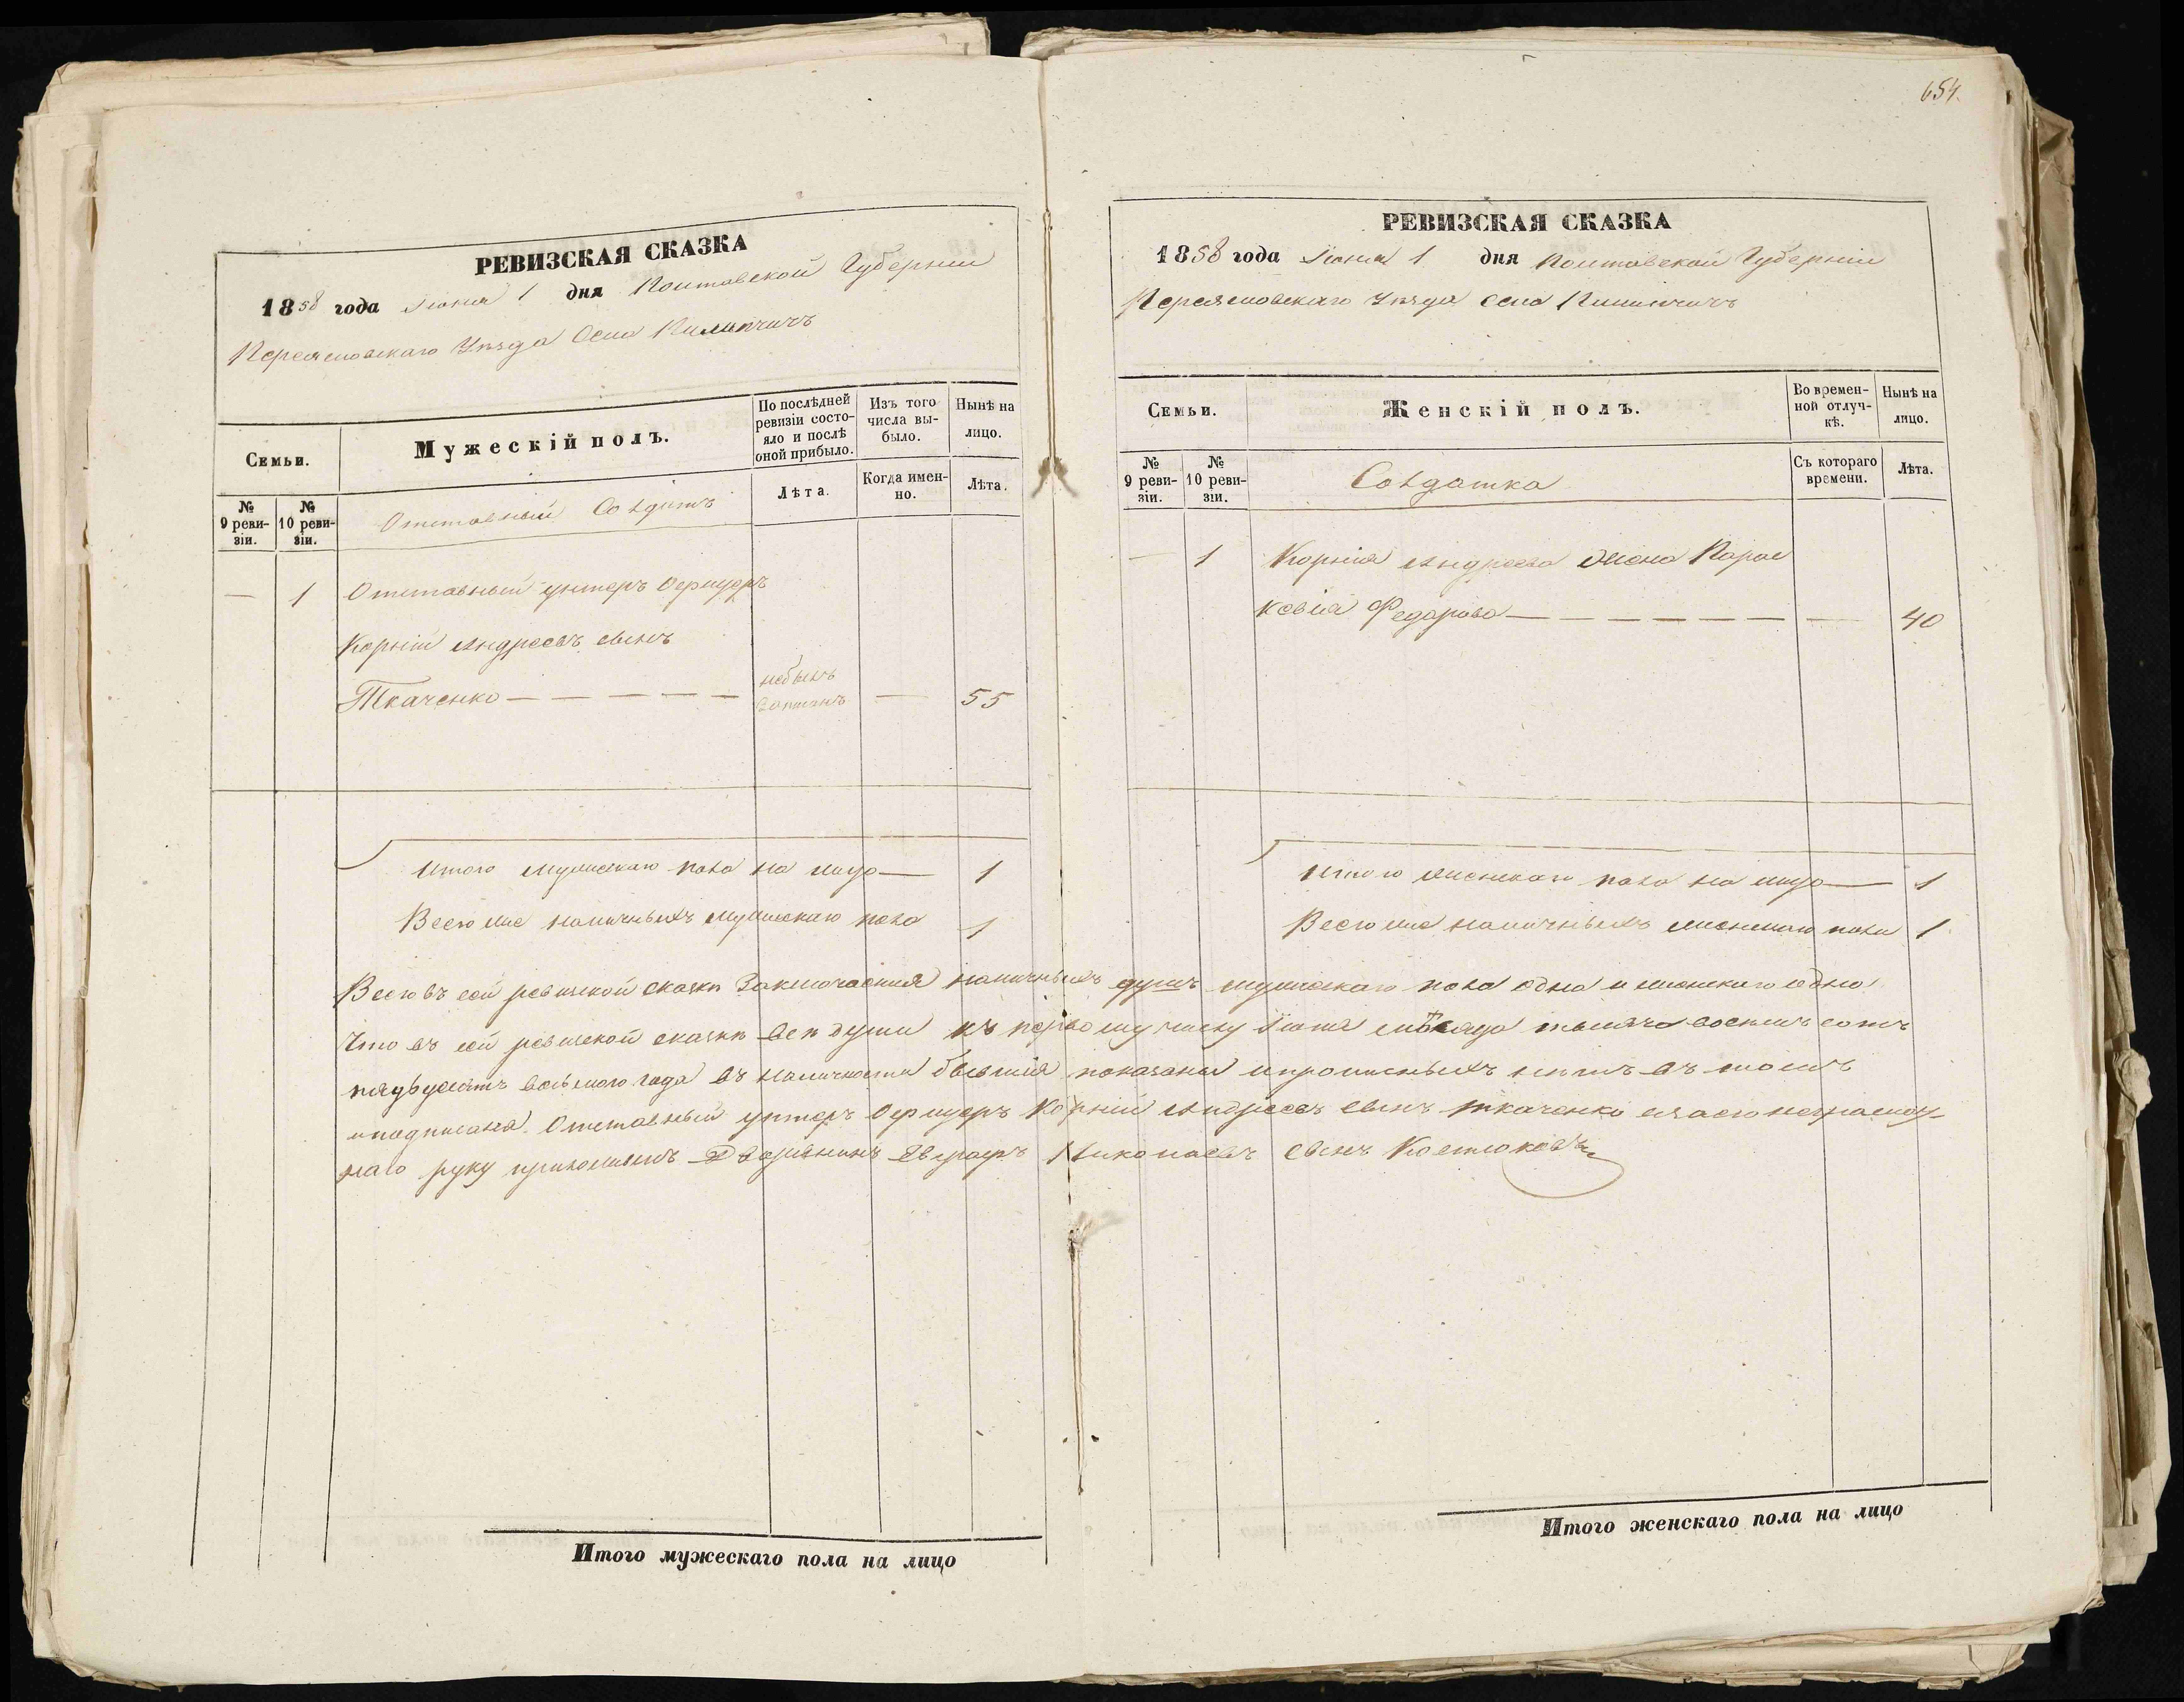 654.
РЕВИЗСКАЯ СКАЗКА
1858 года Іюня 1 дня Полтавской Губерніи
Переяславскаго Уѣзда Села Пилипчичъ
Семьи.
Мужескій полъ.
По послѣдней ревизіи состояло и послѣ оной прибыло.
Изъ того числа выбыло.
Нынѣ на лицо.
№ 9 ревизіи.
№ 10 ревизіи.
Отставный Солдатъ
Лѣта.
Когда именно.
Лѣта.
— 1 Отставный унтеръ Офицеръ
Корній Андреевъ сынъ
Ткаченко — — — — — — небылъ записанъ — 55
Итого мужескаго пола на лицо — 1
Всего же наличныхъ мужескаго пола 1
РЕВИЗСКАЯ СКАЗКА
1858 года Іюня 1 дня Полтавской Губерніи
Переяславскаго Уѣзда Села Пилипчичъ
Семьи.
Женскій полъ.
Во временной отлучкѣ.
Нынѣ на лицо.
№ 9 ревизіи.
№ 10 ревизіи.
Солдатка
Съ котораго времени.
Лѣта.
— 1 Корнія Андреева жена Парас
ковія Федорова — — — — — — — — 40
Итого женскаго пола на лицо — 1
Всего же наличныхъ женскаго пола 1
Всего въ сей ревизской сказкѣ заключается наличныхъ душъ мужескаго пола одна и женскаго одна
Что въ сей ревизской сказкѣ всѣ души къ первому числу Іюня мѣсяца тысяча восемь сотъ
пядьдесятъ восьмого года въ наличности бывшія показаны и прописныхъ нѣтъ въ томъ
и подписался. Отставный унтеръ Офицеръ Корній Андреевъ сынъ Ткаченко а за его неграмот-
наго руку приложилъ Дворянинъ Евграфъ Николаевъ сынъ Костюковъ
Итого мужескаго пола на лицо
Итого женскаго пола на лицо